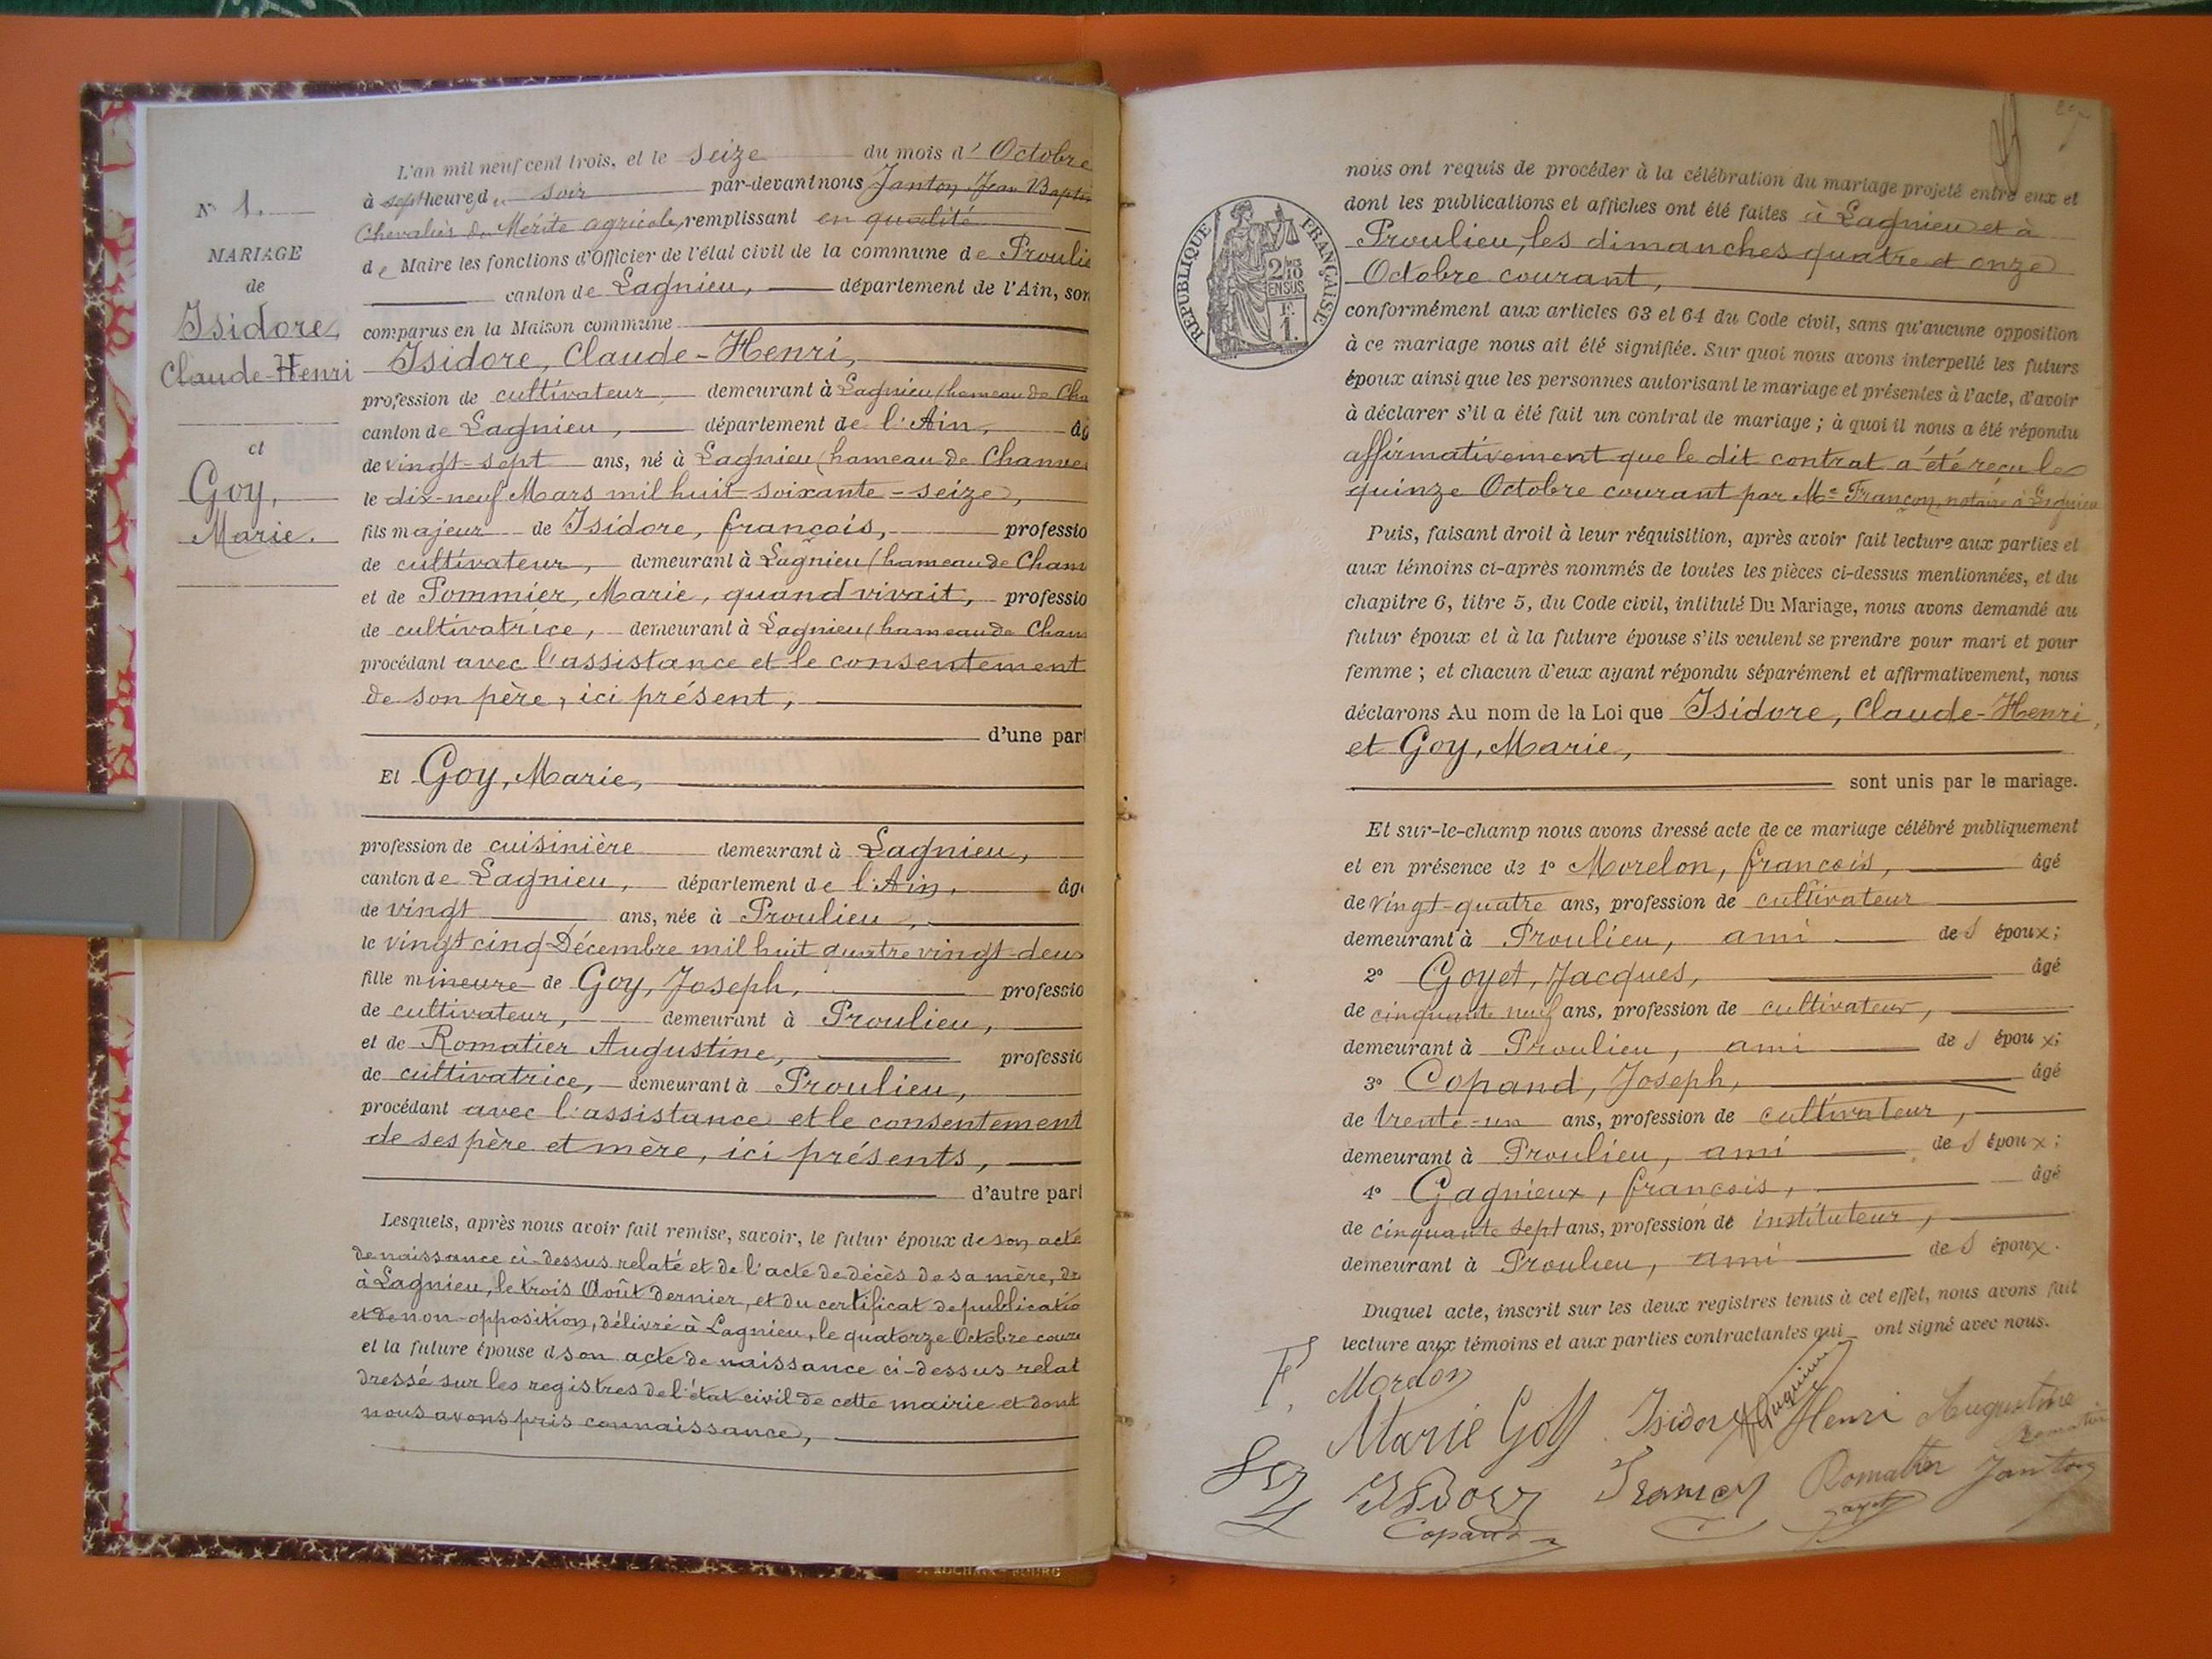 L'an mil neuf cent trois, et le seize du mois d'Octobre
à sept heures du soir par-devant nous Janton Jean Baptis
Chevalier du Mérite agricole, remplissant en qualité
de Maire les fonctions d'Officier de l'état civil de la commune de Proulie
canton de Lagnieu, département de l'Ain, son
comparus en la Maison commune
Isidore, Claude-Henri,
profession de cultivateur demeurant à Lagnieu (hameau de Cha
canton de Lagnieu, département de l'Ain, âg
de vingt-sept ans, né à Lagnieu (hameau de Chanve
le dix-neuf Mars mil huit soixante-seize,
fils majeur de Isidore, françois, professio
de cultivateur, demeurant à Lagnieu (hameau de Chan
et de Pommier, Marie, quand vivait, professio
de cultivatrice, demeurant à Lagnieu (hameau de Chan
procédant avec l'assistance et le consentement
de son père, ici présent,
d'une part
Et Goy, Marie,
profession de cuisinière demeurant à Lagnieu,
canton de Lagnieu, département de l'Ain, âgé
de vingt ans, née à Proulieu,
le vingt cinq Décembre mil huit quatre vingt-deux
fille mineure de Goy, Joseph, professio
de cultivateur, demeurant à Proulieu,
et de Romatier Augustine, professio
de cultivatrice, demeurant à Proulieu,
procédant avec l'assistance et le consentement
de ses père et mère, ici présents,
d'autre part
Lesquels, après nous avoir fait remise, savoir, le futur époux de son acte
de naissance ci-dessus relaté et de l'acte de décès de sa mère, dr
à Lagnieu, le trois Août dernier, et du certificat de publicatio
et de non-opposition, délivré à Lagnieu, le quatorze Octobre coura
et la future épouse d son acte de naissance ci-dessus relat
dressé sur les registres de l'état civil de cette mairie et dont
nous avons pris connaissance,
N° 1.
MARIAGE
de
Isidore,
Claude-Henri
et
Goy,
Marie.
J. ROCHAIX - BOURG
nous ont requis de procéder à la célébration du mariage projeté entre eux et
dont les publications et affiches ont été faites à Lagnieu et à
Proulieu, les dimanches quatre et onze
Octobre courant,
conformément aux articles 63 et 64 du Code civil, sans qu'aucune opposition
à ce mariage nous ait été signifiée. Sur quoi nous avons interpellé les futurs
époux ainsi que les personnes autorisant le mariage et présentes à l'acte, d'avoir
à déclarer s'il a été fait un contrat de mariage ; à quoi il nous a été répondu
affirmativement que le dit contrat a été reçu le
quinze Octobre courant par Me Françon, notaire à Lagnieu
Puis, faisant droit à leur réquisition, après avoir fait lecture aux parties et
aux témoins ci-après nommés de toutes les pièces ci-dessus mentionnées, et du
chapitre 6, titre 5, du Code civil, intitulé Du Mariage, nous avons demandé au
futur époux et à la future épouse s'ils veulent se prendre pour mari et pour
femme ; et chacun d'eux ayant répondu séparément et affirmativement, nous
déclarons Au nom de la Loi que Isidore, Claude-Henri,
et Goy, Marie,
sont unis par le mariage.
Et sur-le-champ nous avons dressé acte de ce mariage célébré publiquement
et en présence de 1° Morelon, françois, âgé
de vingt-quatre ans, profession de cultivateur
demeurant à Proulieu, ami des époux;
2° Goyet, Jacques, âgé
de cinquante neuf ans, profession de cultivateur,
demeurant à Proulieu, ami des époux;
3° Copand, Joseph, âgé
de trente-un ans, profession de cultivateur,
demeurant à Proulieu, ami des époux;
4° Gagnieux, françois, âgé
de cinquante sept ans, profession de instituteur,
demeurant à Proulieu, ami des époux.
Duquel acte, inscrit sur les deux registres tenus à cet effet, nous avons fait
lecture aux témoins et aux parties contractantes qui ont signé avec nous.
F. Morelon
Marie Goy Isidore Henri Augustine
Romatier
Romatier Janton
Copand
RÉPUBLIQUE FRANÇAISE
2/10
EN SUS
1 F.